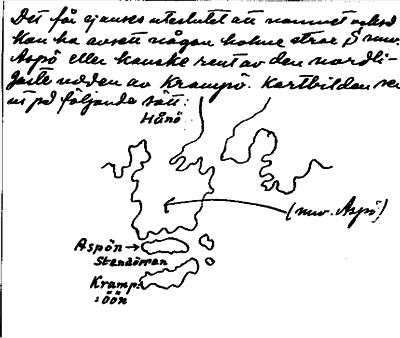 Det får ej anses uteslutet att namnet också
kan ha avsett någon holme strax S nuv.
Aspö eller kanske rent av den nordli-
gaste udden av Krampö. Kartbilden ser
ut på följande sätt:
Hånö
(nuv. Aspö)
Aspön →
Stendörran
Kramp:
:öön